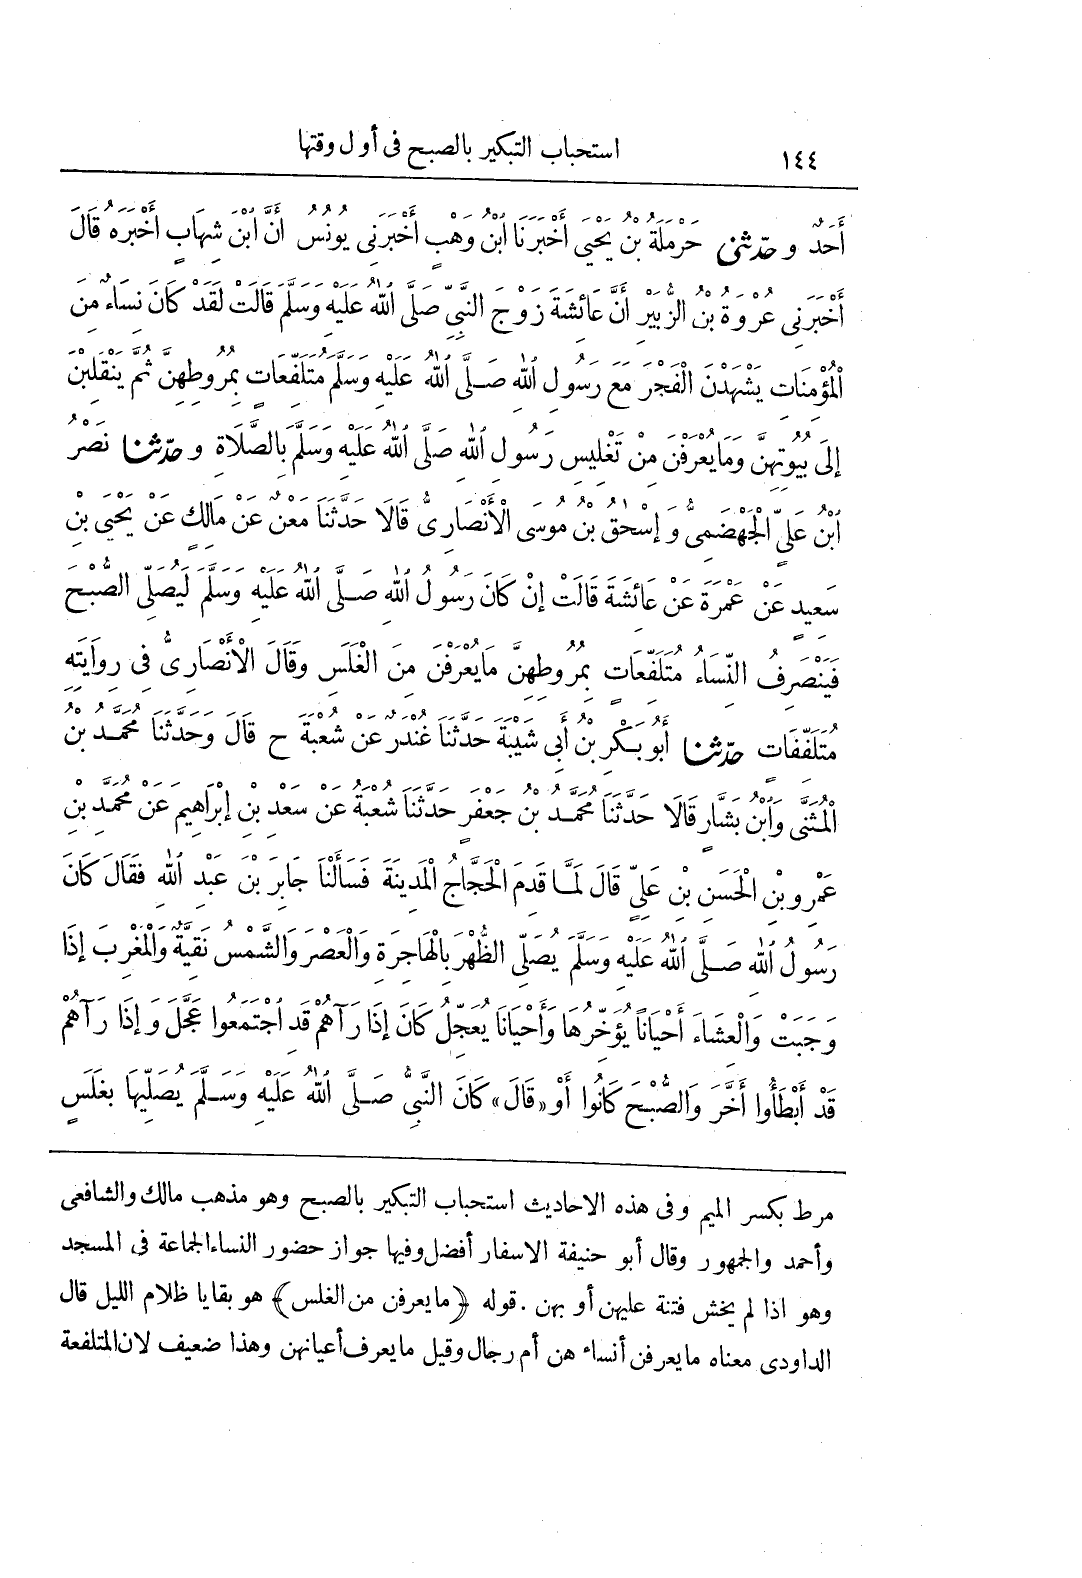 ١٤٤ استحباب التبكير بالصبح فى أول وقتها
أَحَدٌ و حَدّثنى حَرْمَلَةُ بْنُ يَحْيَى أَخْبَرَنَا ابْنُ وَهْبٍ أَخْبَرَنِى يُونُسُ أَنَّ ابْنَ شِهَابٍ أَخْبَرَهُ قَالَ
أَخْبَرَنِى عُرْوَةُ بْنُ الزُّبَيْرِ أَنَّ عَائِشَةَ زَوْجَ النَّبِيِّ صَلَّى اللهُ عَلَيْهِ وَسَلَّمَ قَالَتْ لَقَدْ كَانَ نِسَاءٌ مِنَ
الْمُؤْمِنَاتِ يَشْهَدْنَ الْفَجْرَ مَعَ رَسُولِ اللهِ صَلَّى اللهُ عَلَيْهِ وَسَلَّمَ مُتَلَفِّعَاتٍ بِمُرُوطِهِنَّ ثُمَّ يَنْقَلِبْنَ
إِلَى بُيُوتِهِنَّ وَمَا يُعْرَفْنَ مِنْ تَغْلِيسِ رَسُولِ اللهِ صَلَّى اللهُ عَلَيْهِ وَسَلَّمَ بِالصَّلَاةِ و حَدّثنا نَصْرُ
ابْنُ عَلِيٍّ الْجَهْضَمِىُّ وَ إِسْحٰقُ بْنُ مُوسَى الْأَنْصَارِىُّ قَالَا حَدَّثَنَا مَعْنٌ عَنْ مَالِكٍ عَنْ يَحْيَى بْنِ
سَعِيدٍ عَنْ عَمْرَةَ عَنْ عَائِشَةَ قَالَتْ إِنْ كَانَ رَسُولُ اللهِ صَلَّى اللهُ عَلَيْهِ وَسَلَّمَ لَيُصَلِّى الصُّبْحَ
فَيَنْصَرِفُ النِّسَاءُ مُتَلَفِّعَاتٍ بِمُرُوطِهِنَّ مَا يُعْرَفْنَ مِنَ الْغَلَسِ وَقَالَ الْأَنْصَارِىُّ فِى رِوَايَتِهِ
مُتَلَفِّفَاتٍ حَدّثنا أَبُو بَكْرِ بْنُ أَبِى شَيْبَةَ حَدَّثَنَا غُنْدَرٌ عَنْ شُعْبَةَ ح قَالَ وَحَدَّثَنَا مُحَمَّدُ بْنُ
الْمُثَنَّى وَابْنُ بَشَّارٍ قَالَا حَدَّثَنَا مُحَمَّدُ بْنُ جَعْفَرٍ حَدَّثَنَا شُعْبَةُ عَنْ سَعْدِ بْنِ إِبْرَاهِيمَ عَنْ مُحَمَّدِ بْنِ
عَمْرِو بْنِ الْحَسَنِ بْنِ عَلِيٍّ قَالَ لَمَّا قَدِمَ الْحَجَّاجُ الْمَدِينَةَ فَسَأَلْنَا جَابِرَ بْنَ عَبْدِ اللهِ فَقَالَ كَانَ
رَسُولُ اللهِ صَلَّى اللهُ عَلَيْهِ وَسَلَّمَ يُصَلِّى الظُّهْرَ بِالْهَاجِرَةِ وَالْعَصْرَ وَالشَّمْسُ نَقِيَّةٌ وَالْمَغْرِبَ إِذَا
وَجَبَتْ وَالْعِشَاءَ أَحْيَانًا يُؤَخِّرُهَا وَأَحْيَانًا يُعَجِّلُ كَانَ إِذَا رَآهُمْ قَدِ اجْتَمَعُوا عَجَّلَ وَ إِذَا رَآهُمْ
قَدْ أَبْطَأُوا أَخَّرَ وَالصُّبْحَ كَانُوا أَوْ «قَالَ» كَانَ النَّبِىُّ صَلَّى اللهُ عَلَيْهِ وَسَلَّمَ يُصَلِّيهَا بِغَلَسٍ
مرط بكسر الميم وفى هذه الاحاديث استحباب التبكير بالصبح وهو مذهب مالك والشافعى
وأحمد والجمهور وقال أبو حنيفة الاسفار أفضل وفيها جواز حضور النساء الجماعة فى المسجد
وهو اذا لم يخش فتنة عليهن أو بهن . قوله ﴿ ما يعرفن من الغلس ﴾ هو بقايا ظلام الليل قال
الداودى معناه ما يعرفن أنساء هن أم رجال وقيل ما يعرف أعيانهن وهذا ضعيف لان المتلفعة